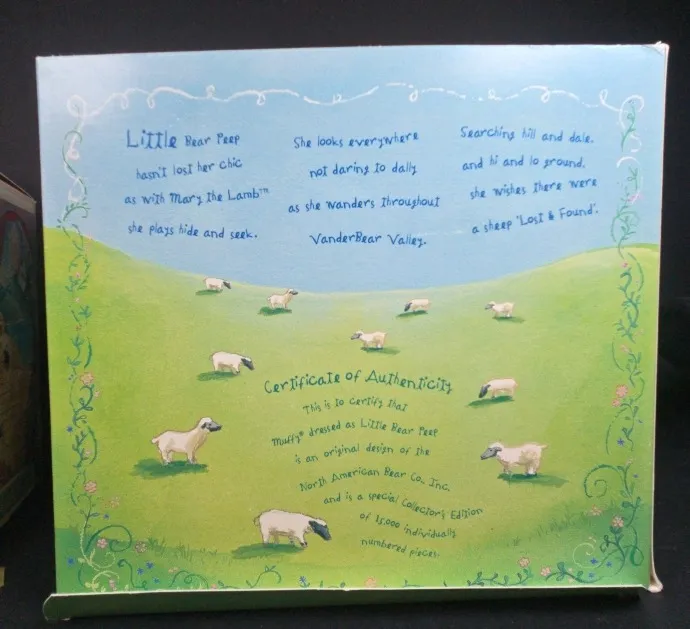 Little Bear Peep
hasn't lost her chic
as with Mary the Lamb™
she plays hide and seek.
She looks everywhere
not daring to dally
as she wanders throughout
VanderBear Valley.
Searching hill and dale,
and hi and lo ground,
she wishes there were
a sheep 'Lost & Found'.
Certificate of Authenticity
This is to certify that
Muffy® dressed as Little Bear Peep
is an original design of the
North American Bear Co., Inc.
and is a special Collector's Edition
of 15,000 individually
numbered pieces.